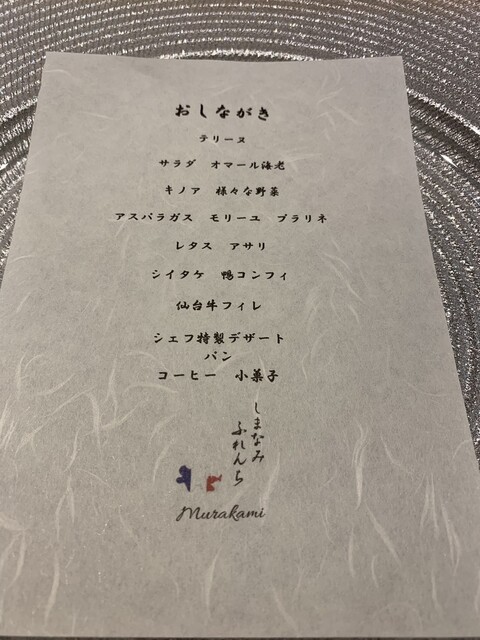 おしながき
テリーヌ
サラダ　オマール海老
キノア　様々な野菜
アスパラガス　モリーユ　プラリネ
レタス　アサリ
シイタケ　鴨コンフィ
仙台牛フィレ
シェフ特製デザート
パン
コーヒー　小菓子
しまなみ
ふれんち
Murakami